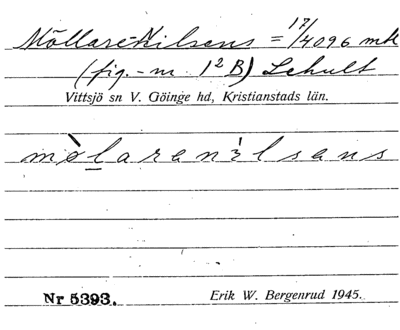 Möllare-Nilsens = 17/4096 mtl
(fig.-m 1²B) Lehult
Vittsjö sn V. Göinge hd, Kristianstads län.
mòlaranìlsans
Nr 5393.
Erik W. Bergenrud 1945.